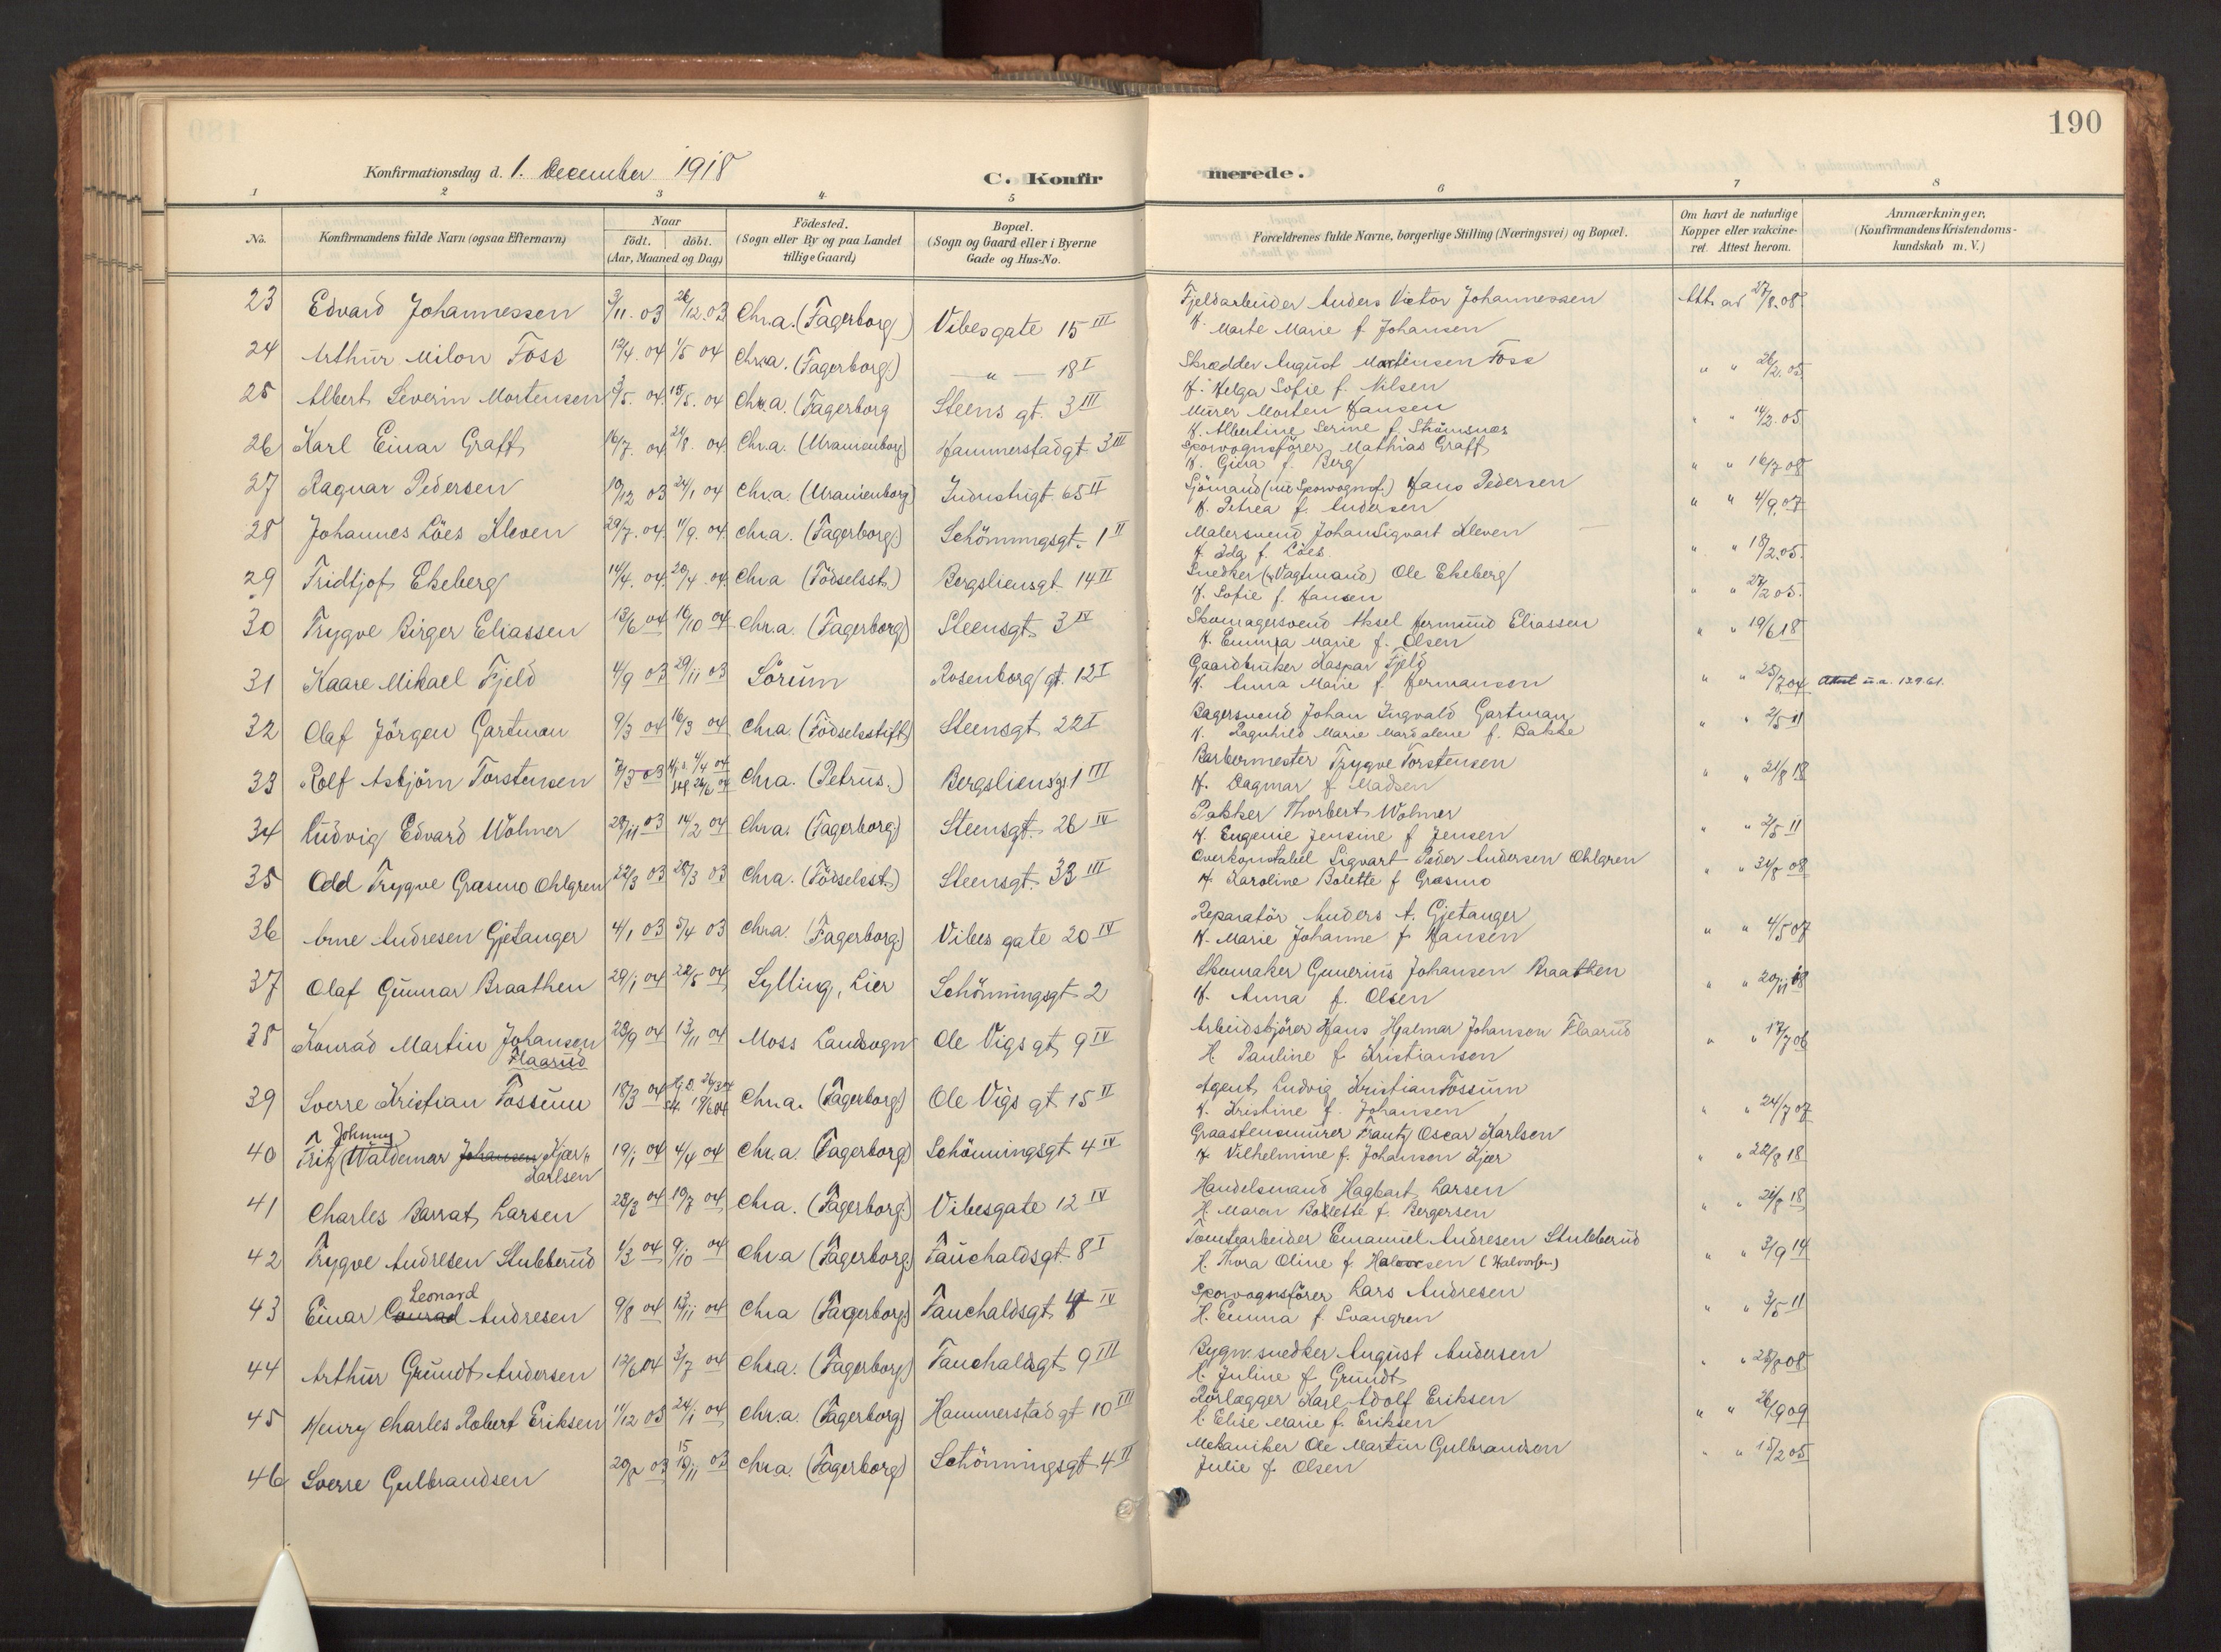 190
Konfirmationsdag d. 1. December 1918
C. Konfirmerede.
1 2 3 4 5 6 7 8
No.
Konfirmandens fulde Navn (ogsaa Efternavn)
Naar
födt. döbt.
(Aar, Maaned og Dag)
Födested.
(Sogn eller By og paa Landet
tillige Gaard)
Bopæl.
(Sogn og Gaard eller i Byerne
Gade og Hus-No.
Forældrenes fulde Navne, borgerlige Stilling (Næringsvei) og Bopæl.
Om havt de naturlige
Kopper eller vaksine-
ret. Attest herom.
Anmærkninger,
(Konfirmandens Kristendoms-
kundskab m. V.)
23 Edvard Johannessen 3/11. 03 26/12. 03 Chr.a. (Fagerborg) Vibesgate 15 III Fjeldarbeider Anders Victor Johannessen Att. av 27/8. 08
H. Marte Marie f. Johansen
24 Arthur Milon Foss 12/4. 04 1/5 04 Chr.a. (Fagerborg.) — " — 18 I Skrædder August Mortensen Foss " " 26/2. 05.
H. Helga Sofie f. Nilsen
25 Albert Severin Mortensen 3/5. 04. 15/5. 04 Chr.a. (Fagerborg Steens gt. 3 III Murer Morten Hansen " " 14/2. 05
H. Albertine Serine f. Strömsnes
26 Karl Einar Graff 16/7. 04 21/8. 04. Chr.a. (Uranienborg) Hammerstadgt. 3 III Sporvognsförer Mathias Graff " " 16/7 08
H. Gina f. Berg
27 Ragnar Pedersen 19/12 03 24/1 04 Chr.a. (Uranienborg) Industrigt. 65 II Sjömand (nu Sporvognsf.) Hans Pedersen " " 4/9. 07
H. Petrea f. Andersen
28 Johannes Löes Kleven 29/7. 04. 11/9. 04. Chr.a. (Fagerborg.) Schönningsgt. 1 II Malersvend Johan Sigvart Kleven " " 18/2. 05.
H. Ida f. Löes.
29 Fridtjof Ekeberg 14/4. 04. 20/4. 04. Chr.a (Födselsst.) Bergsliensgt. 14 II Snedker (Vagtmand) Ole Ekeberg " " 27/2 05.
H. Sofie f. Hansen
30 Trygve Birger Eliassen 13/6 04 16/10 04 Chr.a. (Fagerborg) Steensgt. 3 IV Skomagersvend Aksel Hermund Eliassen " " 19/6 18
H. Emma Marie f. Olsen
31 Kaare Mikael Fjeld 4/9 03 29/11 03 Sörum Rosenborg gt. 12 I Gaardbruker Kaspar Fjeld " " 25/7. 04 Attest u.a. 12.9.61.
H. Anna Marie f. Hermansen
32 Olaf Jörgen Gartman 9/3 04 16/3 04 Chr.a. (Födselsstift) Steensgt. 22 I Bagersvend Johan Ingvald Gartman " " 2/5 11
H. Ragnhild Marie Mardalene f. Bakke
33 Rolf Asbjörn Torstensen 7/3 03 Hj.d. 4/4 04 st.f. 26/6 04 Chr.a. (Petrus.) Bergsliensg. 1 III Barbermester Trygve Torstensen " " 21/8 18
H. Dagmar f. Madsen
34 Ludvig Edvard Wolmer 28/11 03 14/2 04 Chr.a. (Fagerborg) Steensgt. 26 IV Pakker Thorbert Wolmer " " 2/5 11
H. Eugenie Jensine f. Jensen
35 Odd Trygve Græsmo Ohlgren 22/3 03 28/3 03 Chr.a. (Födselsst.) Steensgt. 33 III Overkonstabel Sigvart Peder Andersen Ohlgren " " 31/8 08
H. Karoline Bolette f. Græsmo
36 Arne Andresen Gjetanger 4/1 03 5/4 03 Chr.a. (Fagerborg) Vibes gate 20 IV Reparatör Anders A. Gjetanger " " 4/5 07
H. Marie Johanne f. Hansen
37 Olaf Gunnar Braathen 29/1 04 22/5 04 Sylling, Lier Schönningsgt 2 Skomaker Gunerius Johansen Braathen " " 20/11 18
H. Anna f. Olsen
38 Konrad Martin Johansen 23/9 04 13/11 04 Moss Landsogn Ole Vigs gt. 9 IV Arbeidskjörer Hans Hjalmar Johansen Flaarud " " 17/7 06
Flaarud
H. Pauline f. Kristiansen
39 Sverre Kristian Fossum 18/3 04 Hj.d. 26/3 04 st.f. 19/6 04 Chr.a. (Fagerborg) Ole Vigs gt. 15 II Agent Ludvig Kristian Fossum " " 24/7 07
H. Kristine f. Johansen
Johnny
40 Fritz Waldemar Johansen Kjær 19/1 04 4/4 04 Chr.a. (Fagerborg) Schönningsgt 4 IV Graastensmurer Frantz Oscar Karlsen " " 22/8 18
Karlsen
H. Vilhelmine f. Johansen Kjær
41 Charles Barrat Larsen 23/3 04 10/7 04 Chr.a. (Fagerborg.) Vibesgate 12 IV Handelsmand Hagbart Larsen " " 21/8 18
H. Maren Bollette f. Bergersen
42 Trygve Andresen Stubberud 1/3 04 9/10 04 Chr.a (Fagerborg) Fauchaldsgt. 8 I Tomtearbeider Emanuel Andresen Stubberud " " 3/9 14
H. Thora Oline f. Halvorsen (Halvorsen)
Leonard
43 Einar Conrad Andresen 9/8 04 13/11 04 Chr.a (Fagerborg) Fauchaldsgt. 4 IV Sporvognsförer Lars Andresen " " 3/5 11
H. Emma f. Svangren
44 Arthur Grundt Andersen 12/6 04 3/7 04 Chr.a. (Fagerborg) Fauchaldsgt. 9 III Bygn. snedker August Andersen " " 25/8 08
H. Juline f. Grundt
45 Henry Charles Robert Eriksen 11/12 03 24/1 04 Chr.a. (Fagerborg) Hammerstad gt 10 III Rörlægger Karl Adolf Eriksen " " 26/9 09
H. Elise Marie f. Eriksen
46 Sverre Gulbrandsen 20/8 03 15/11 03 Chr.a. (Fagerborg) Schönningsgt 4 II Mekaniker Ole Martin Gulbrandsen " " 15/2 05
Julie f. Olsen